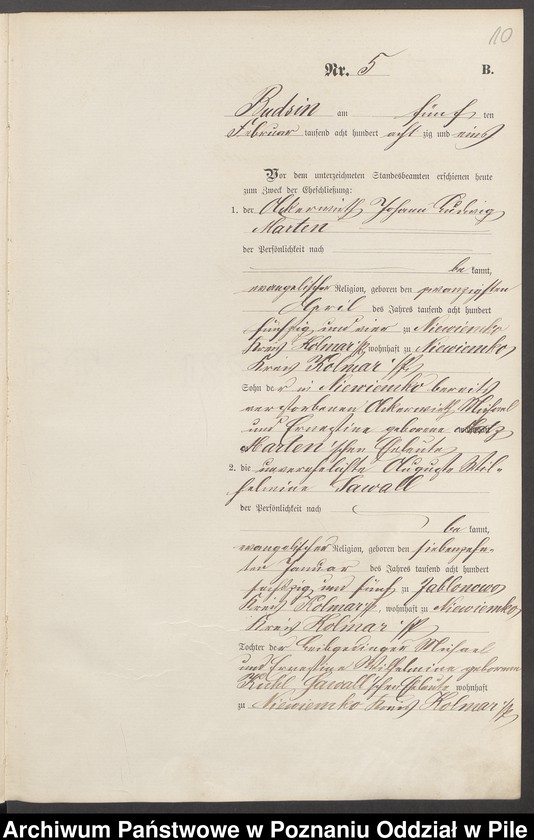 10
Nr. 5 B.
Budsin am fünf ten
Februar tausend acht hundert acht zig und eins
Vor dem unterzeichneten Standesbeamten erschienen heute
zum Zweck der Eheschließung:
1. der Ackerwirth Johann Ludwig
Marten
der Persönlichkeit nach
be kannt,
evangelischer Religion, geboren den zwanzigsten
April des Jahres tausend acht hundert
fünfzig und vier zu Niewiemko
Kreis Kolmar i/P, wohnhaft zu Niewiemko
Kreis Kolmar i/P,
Sohn der in Niewiemko bereits
verstorbenen Ackerwirth Michael
und Ernestine geborene
Marten'schen Eheleute
2. die unverehelichte Auguste Wil-
helmine Sawall
der Persönlichkeit nach
be kannt,
evangelischer Religion, geboren den siebenzehn-
ten Januar des Jahres tausend acht hundert
sechszig und fünf zu Jablonowo
Kreis Kolmar i/P, wohnhaft zu Niewiemko
Kreis Kolmar i/P
Tochter der Leibgedinger Michael
und Ernestine Wilhelmine geborenen
Kuhl, Sawall'schen Eheleute wohnhaft
zu Niewiemko Kreis Kolmar i/P
Archiwum Państwowe w Poznaniu Oddział w Pile